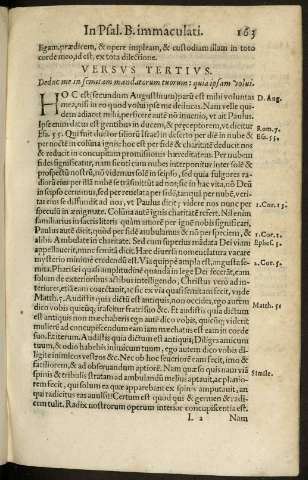 In Psal. B. immaculati. 163
ligam, prædicem, & opere impleam, & custodiam illam in toto
corde meo, id est, ex tota dilectione.
VERSVS TERTIVS.
Deduc me in semitam mandatorum tuorum: quia ipsam volui.
HOC est secundum Augustinum: parũ est mihi voluntas D. Aug.
mea, nisi in eo quod volui ipse me deducas. Nam velle qui-
dem adiacet mihi, perficere autẽ nõ inuenio, vt ait Paulus. Rom. 7.
Ipse enim ducatus est gentibus in ducem, & præceptorem, vt dicitur
Esa. 55. Qui fuit ductor filiorũ Israel in deserto per diẽ in nube & Esa. 55.
per noctẽ in colũna ignis: hoc est per fidẽ & charitatẽ deducit nos
& reducit in concupitam promissionis hæreditatem. Per nubem
fides significatur, nam sicuti cum nubes interponitur inter solẽ &
prospectũ nostrũ, nõ videmus solẽ in seipso, sed quia fulgores ra-
diorũ eius per illã nubẽ se trãsmittũt ad nos; sic in hac vita, nõ Deũ
in seipso cernimus, sed per reuelata per
tias eius se diffundit ad nos, vt Paulus dicit; videre nos nunc per 1. Cor. 13.
speculũ in ænigmate. Colũna autẽ ignis charitatẽ refert. Nil enim
familiarius in sacris literis quàm amorẽ per ignẽ nobis significari.
Paulus autẽ dicit, quòd per fidẽ ambulamus & nõ per speciem, & 2. Cor. 5.
alibi. Ambulate in charitate. Sed cum superius mãdata Dei viam Ephes. 5.
appellauerit, nunc semitã dicit. Hæc diuersi nomẽclatura vacare
mysterio minimè credendũ est. Via quippè ampla est, angusta se- 2. Cor. 5.
mita. Pharisæi quasi amplitudinẽ quandã in lege Dei fecerãt, eam
solum de exterioribus actibus intelligendo, Christus verò ad in-
teriores, etiã eam coarctauit, & sic ex via quasi semitam fecit, vnde
Matth. 5. Audistis quia dictũ est antiquis, non occides, ego autem Matth. 5.
dico vobis quicũq; irascitur fratri suo &c. Et audistis quia dictum
est antiquis non mœchaberis ego autẽ dico vobis, quicũq; viderit
mulierẽ ad concupiscendum eam iam mœchatus est eam in corde
suo. Et iterum. Audistis quia dictum est antiquis; Diliges amicum
tuum, & odio habebis inimicum tuum, ego autem dico vobis di-
ligite inimicos vestros &c. Nec ob hoc seueriorẽ eam fecit, imò &
faciliorem, & ad obseruandum aptiorẽ. Nam quæso quis nam viã
spinis & tribulis stratam ad ambulandũ melius aptauit, ac planio- Simile.
rem fecit, qui solum ea quæ apparebant ex spinis amputauit, an
qui radicitus eas auulsit? Certum est quòd qui & germen & radi-
cem tulit. Radix nostrorum operum interior concupiscentia est.
L 2 Nam